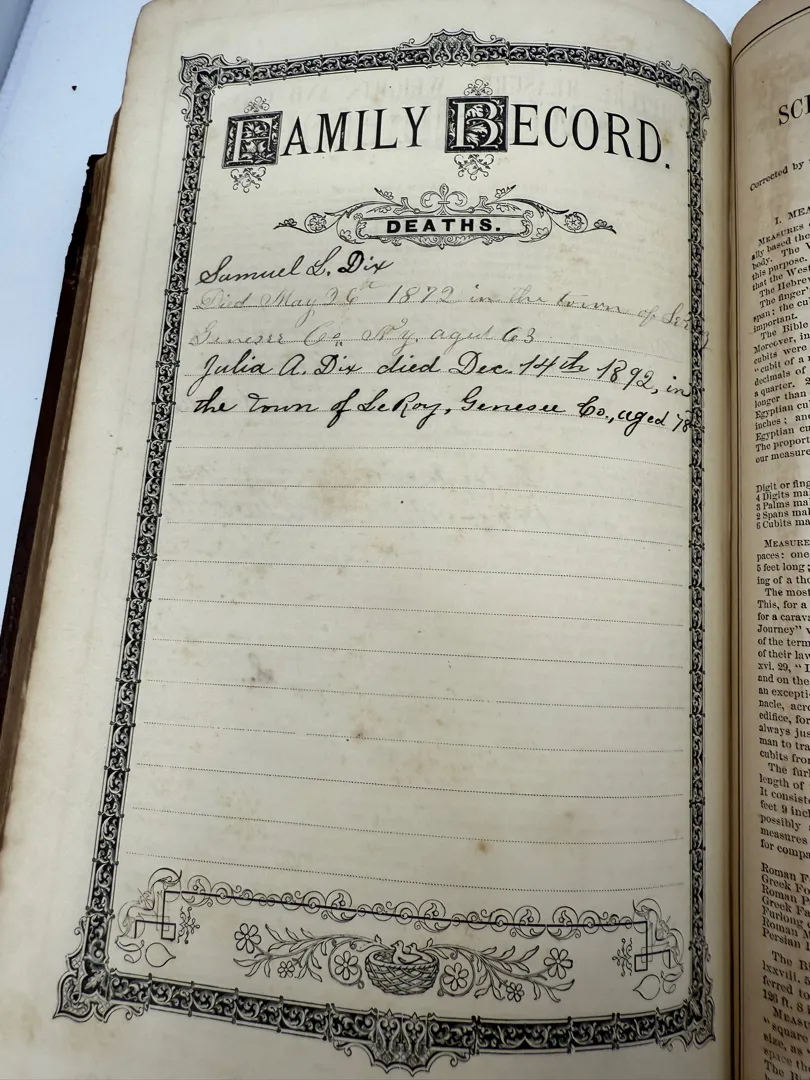 FAMILY RECORD.
DEATHS.
Samuel L. Dix
Died May 26th 1872 in the town of
Genesee Co, N.y. aged 63
Julia A. Dix died Dec. 14th 1892, in
the town of LeRoy, Genesee Co., aged 78
SC
Corrected by
I. MEA
MEASURES
ally based the
body. The
this purpose.
that the West
The Hebrew
The finger'
span; the cu
important.
The Bible
Moreover, in
cubits were
"cubit of a
decimals of
a quarter. 2
longer than
Egyptian cu
inches; and
Egyptian cu
The proport
our measure
Digit or fing
4 Digits ma
3 Palms ma
2 Spans mal
6 Cubits ma
MEASURE
paces: one
5 feet long;
ing of a tho
The most
This, for a
for a carava
Journey"
of the term
of their law
xvi. 29, "I
and on the
an excepti
nacle, acro
edifice, for
always jus
man to tra
cubits from
The fur
length of
It consist
feet 9 incl
possibly
measures
for compa
Roman F
Greek Fo
Roman P
Greek Fo
Furlong
Roman M
Persian
The B
lxxviii. 5
ferred to
136 ft. 8
MEAS
"square
size, as
space th
The